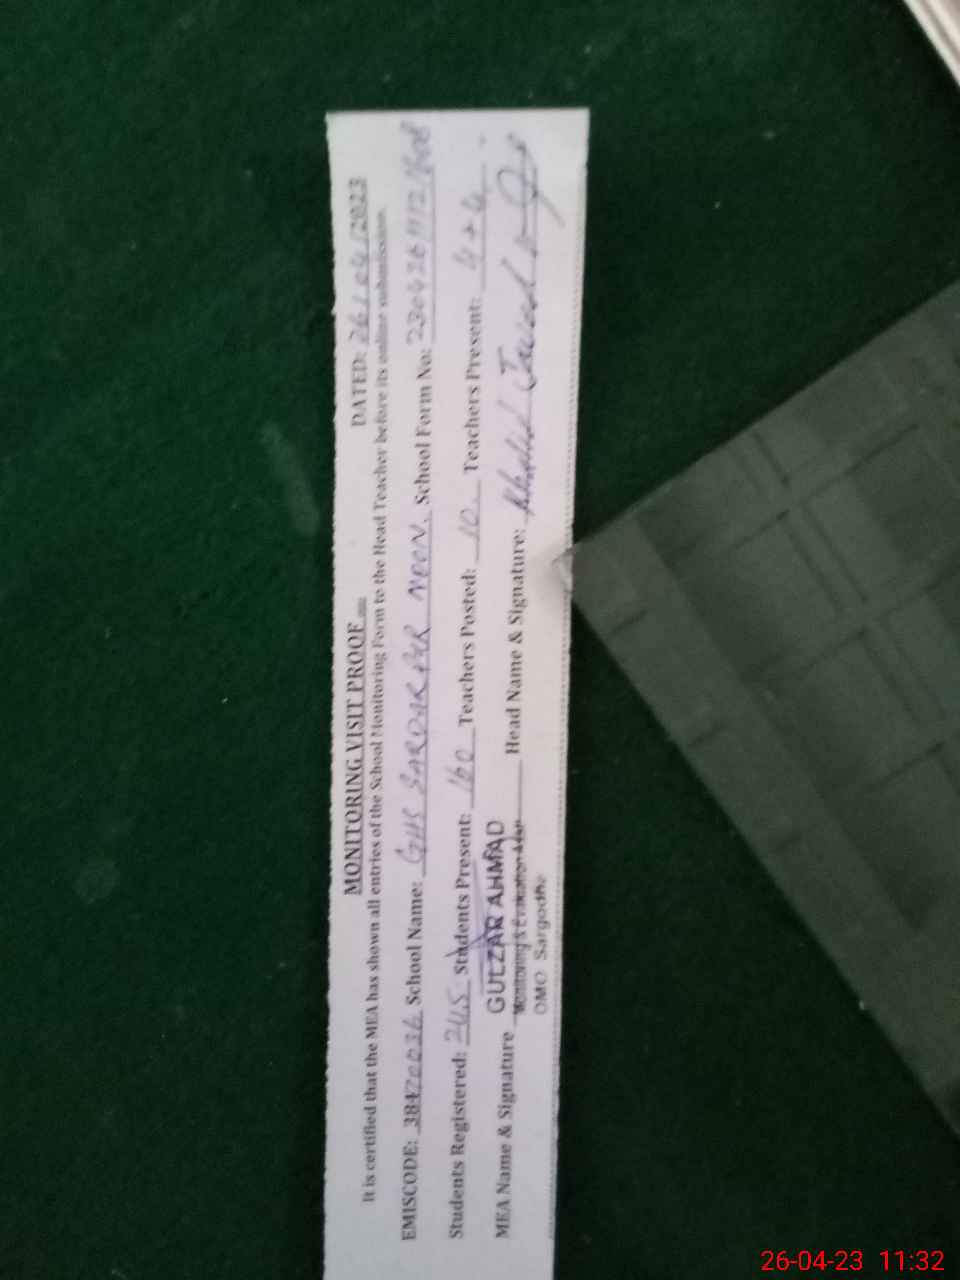 MONITORING VISIT PROOF
DATED: 26/04/2023
It is certified that the MEA has shown all entries of the School Monitoring Form to the Head Teacher before its online submission.
EMISCODE: 38470036 School Name: GHS SARDAR PUR NOON. School Form No:
Students Registered: 245 Students Present: 160 Teachers Posted: 10 Teachers Present: 4+4
MEA Name & Signature GULZAR AHMAD Head Name & Signature: Khalid Javed
Monitoring & Evaluation Asstt
DMO Sargodha
26-04-23 11:32